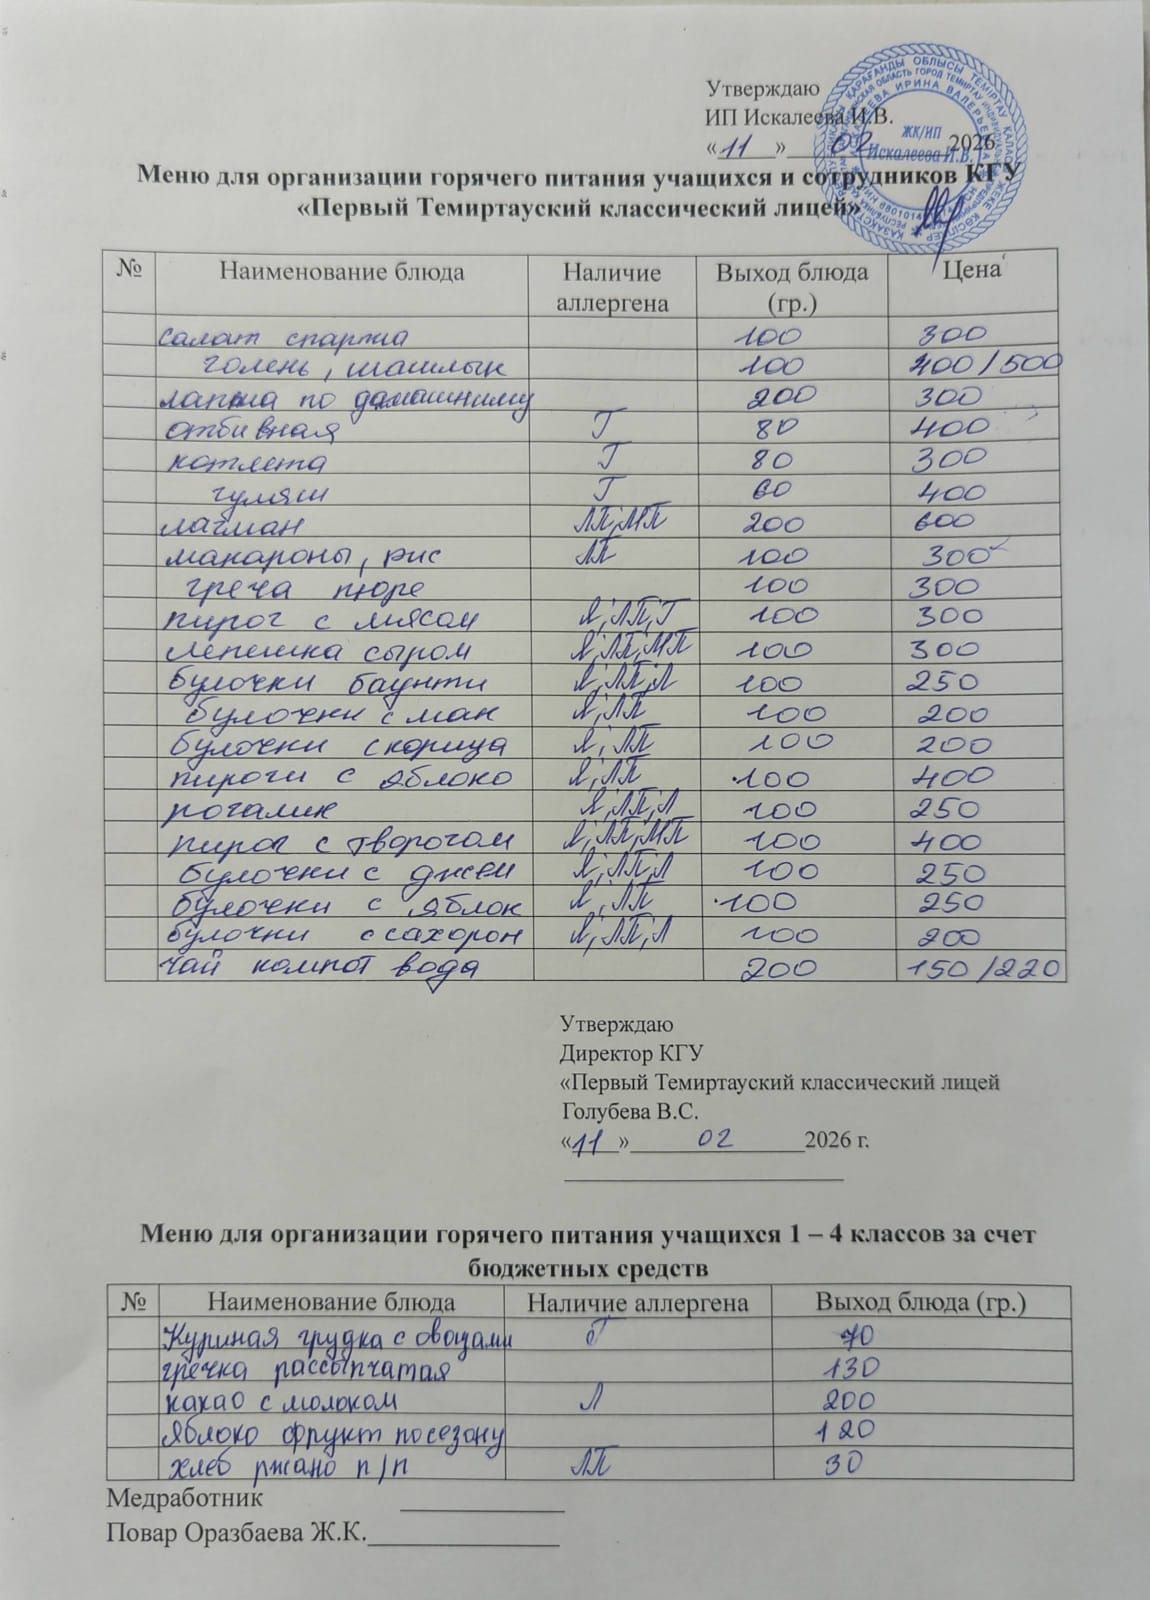 Утверждаю
ИП Искалеева И.В.
« 11 » 02 2026
ЖК/ИП
Искалеева И.В.
Меню для организации горячего питания учащихся и сотрудников КГУ
«Первый Темиртауский классический лицей»
№ Наименование блюда Наличие аллергена Выход блюда (гр.) Цена
салат спаржа 100 300
голень, шашлык 100 400/500
лапша по дамашниму 200 300
отбивная Г 80 400
котлета Г 80 300
гуляш Г 60 400
лагман ЛП, МП 200 600
макароны, рис ЛП 100 300
греча пюре 100 300
пирог с мясом Я, ЛП, Г 100 300
лепешка сыром Я, ЛП, МП 100 300
булочки баунти Я, ЛП, Л 100 250
булочки с мак Я, ЛП 100 200
булочки с корица Я, ЛП 100 200
пироги с яблоко Я, ЛП 100 400
рогалик Я, ЛП, Л 100 250
пирог с творогом Я, ЛП, МП 100 400
булочки с джем Я, ЛП, Л 100 250
булочки с яблок Я, ЛП 100 250
булочки с сахорон Я, ЛП, Л 100 200
чай компот вода 200 150/220
Утверждаю
Директор КГУ
«Первый Темиртауский классический лицей
Голубева В.С.
« 11 » 02 2026 г.
Меню для организации горячего питания учащихся 1 – 4 классов за счет
бюджетных средств
№ Наименование блюда Наличие аллергена Выход блюда (гр.)
Куриная грудка с овощами Г 70
гречка рассыпчатая 130
какао с молоком Л 200
яблоко фрукт по сезону 120
хлеб ржано п/п ЛП 30
Медработник
Повар Оразбаева Ж.К.